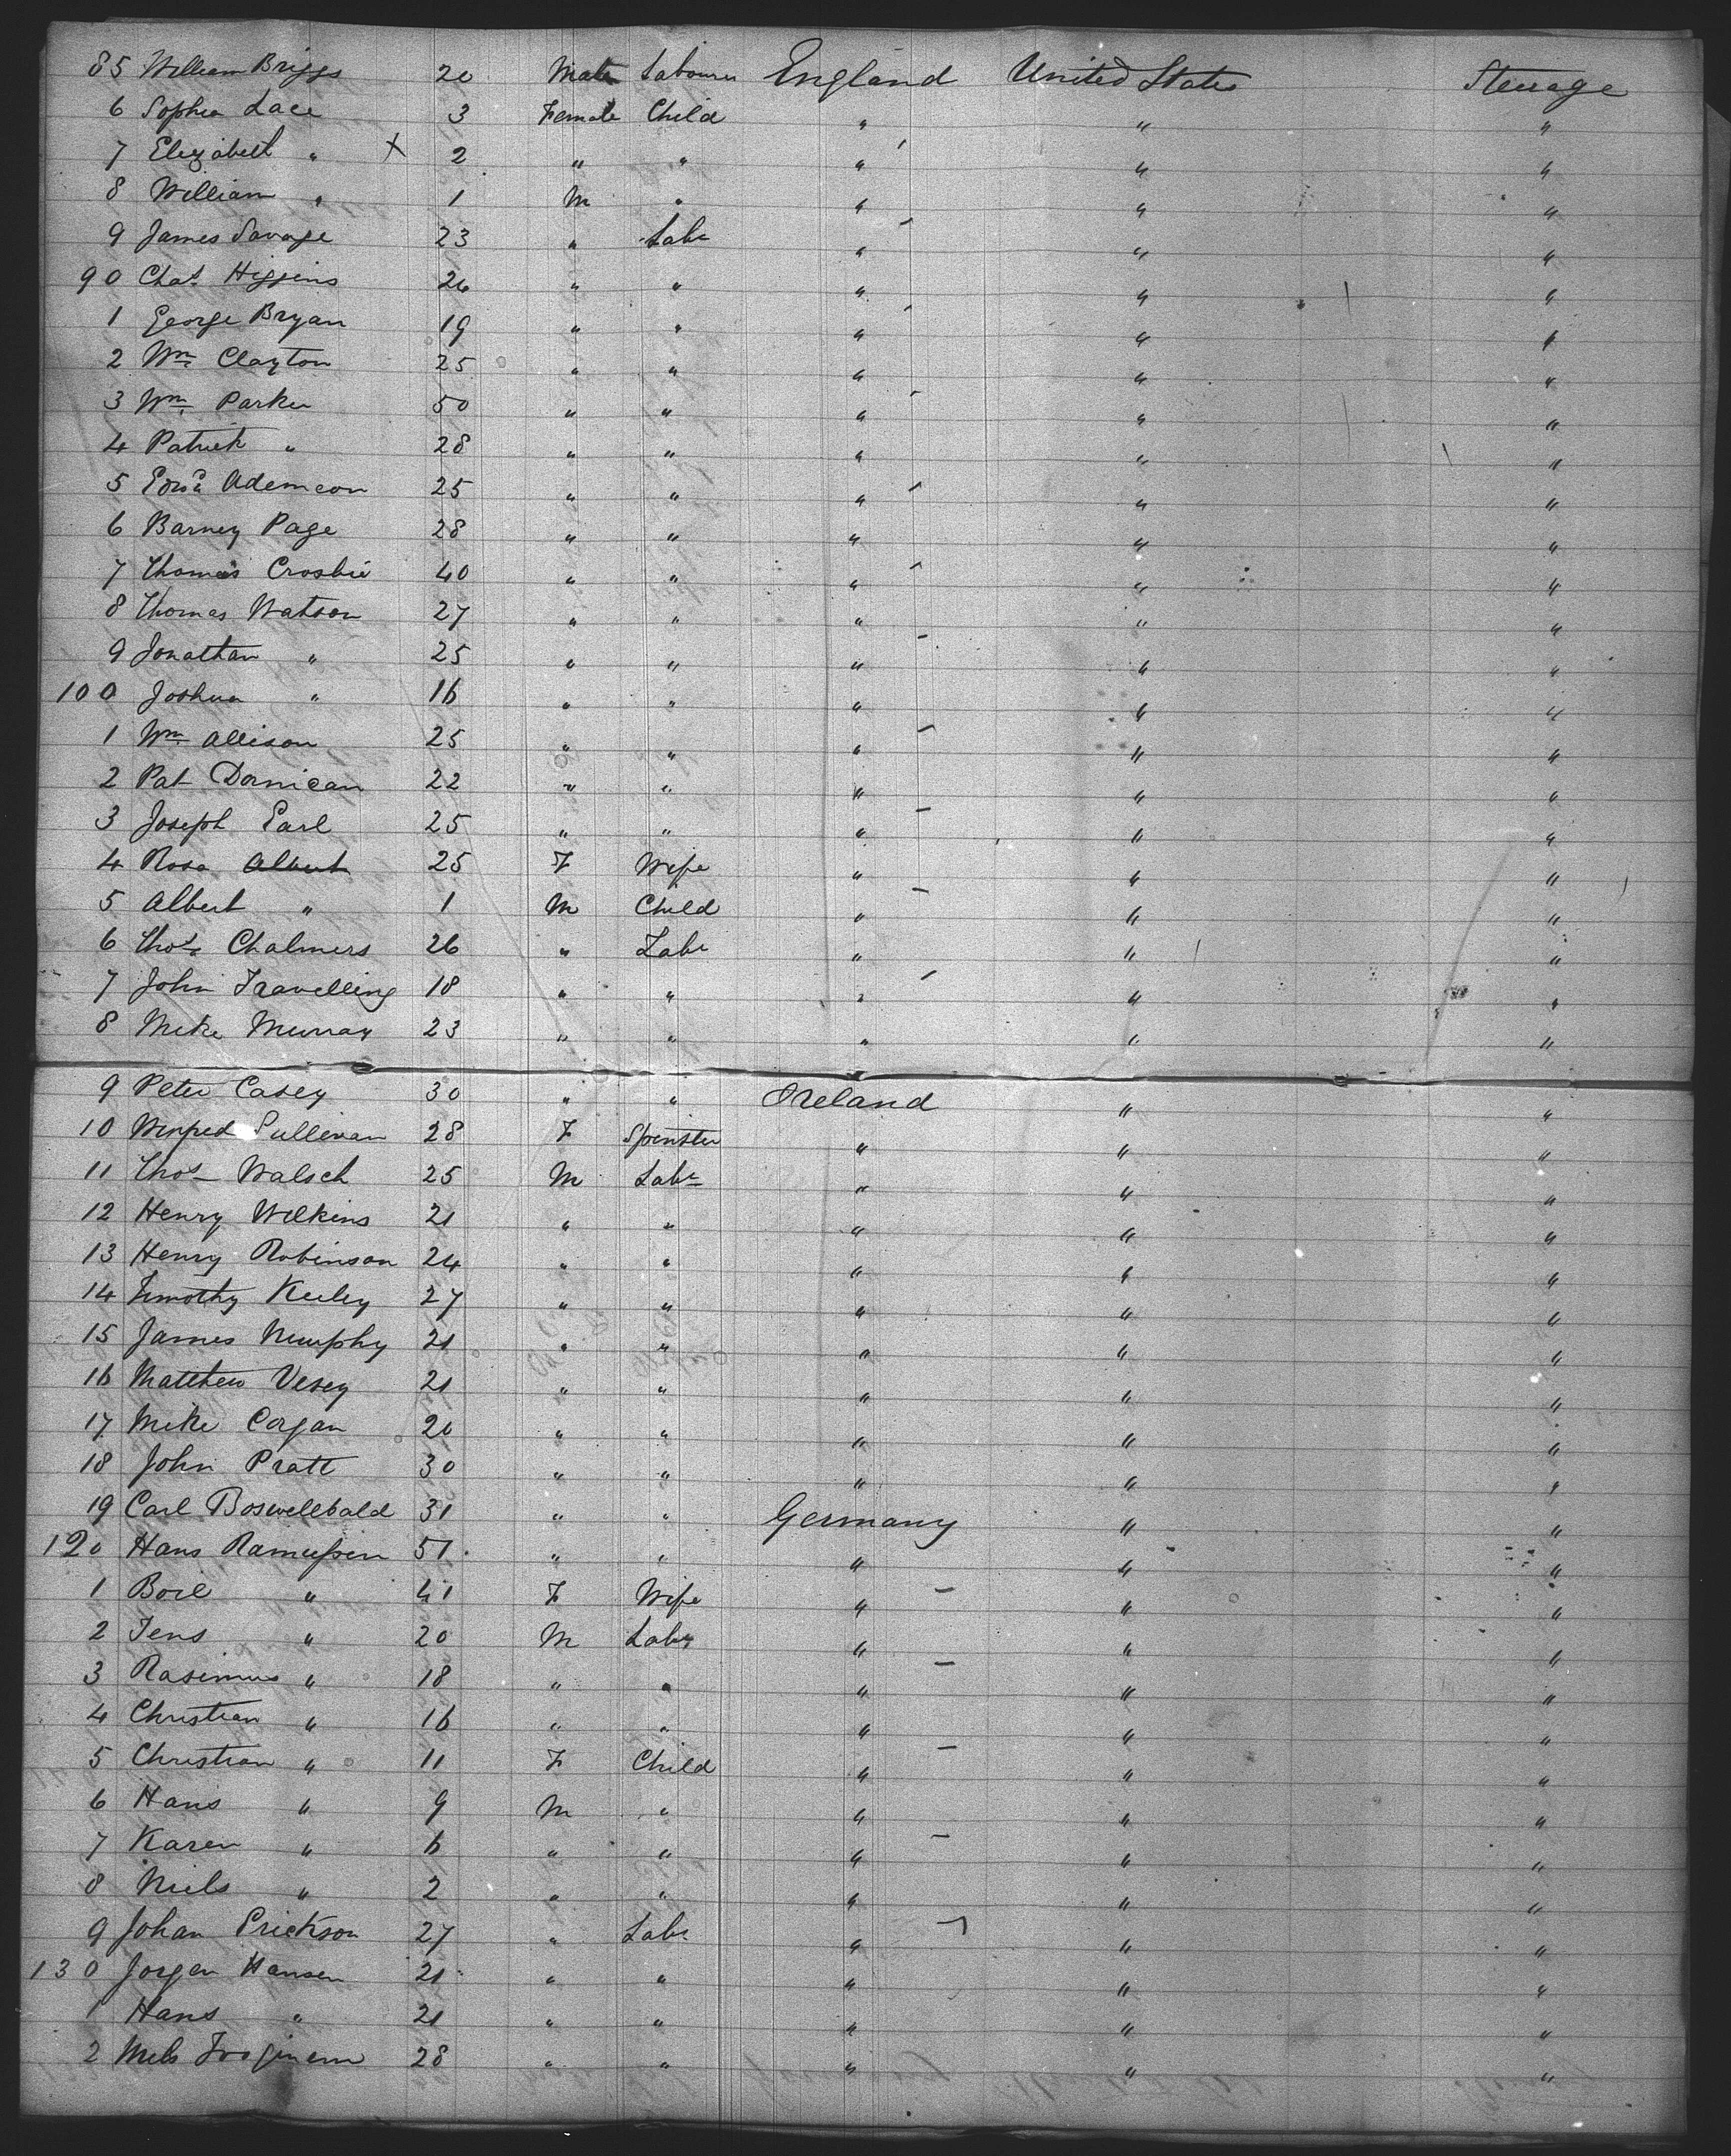 85 William Briggs 20 Male Labourer England United States Steerage
6 Sophia Lace 3 Female Child " " "
7 Elizabeth " X 2 " " " " "
8 William " 1 M " " " "
9 James Savage 23 " Labr " " "
90 Chas Higgins 26 " " " " "
1 George Bryan 19 " " " " "
2 Wm Clayton 25 " " " " "
3 Wm Parker 50 " " " " "
4 Patrick " 28 " " " " "
5 Edwd Ademson 25 " " " " "
6 Barney Page 28 " " " " "
7 Thomas Crosbie 40 " " " " "
8 Thomas Watson 27 " " " " "
9 Jonathan " 25 " " " " "
100 Joshua " 16 " " " " "
1 Wm Allison 25 " " " " "
2 Pat Dornican 22 " " " " "
3 Joseph Earl 25 " " " " "
4 Rosa Albert 25 F Wife " " "
5 Albert " 1 M Child " " "
6 Thos Chalmers 26 " Labr " " "
7 John Travelling 18 " " " " "
8 Mike Murray 23 " " " " "
9 Peter Casey 30 " " Ireland " "
10 Sullivan 28 F Spinster " " "
11 Thos Walsch 25 M Labr " " "
12 Henry Wilkins 21 " " " " "
13 Henry Robinson 24 " " " " "
14 Timothy Keeley 27 " " " " "
15 James Murphy 21 " " " " "
16 Matthew Vesey 21 " " " " "
17 Mike Corgan 20 " " " " "
18 John Pratt 30 " " " " "
19 Carl Boswellbald 31 " " Germany " "
120 Hans Ramussen 51 " " " " "
1 Boil " 41 F Wife " " "
2 Jens " 20 M Labr " " "
3 Rasimus " 18 " " " " "
4 Christian " 16 " " " " "
5 Christian " 11 F Child " " "
6 Hans " 9 M " " " "
7 Karen " 6 " " " " "
8 Niels " 2 " " " " "
9 Johan Erickson 27 " Labr " " "
130 Jorgen Hansen 21 " " " " "
1 Hans " 21 " " " " "
2 Niels 28 " " " " "